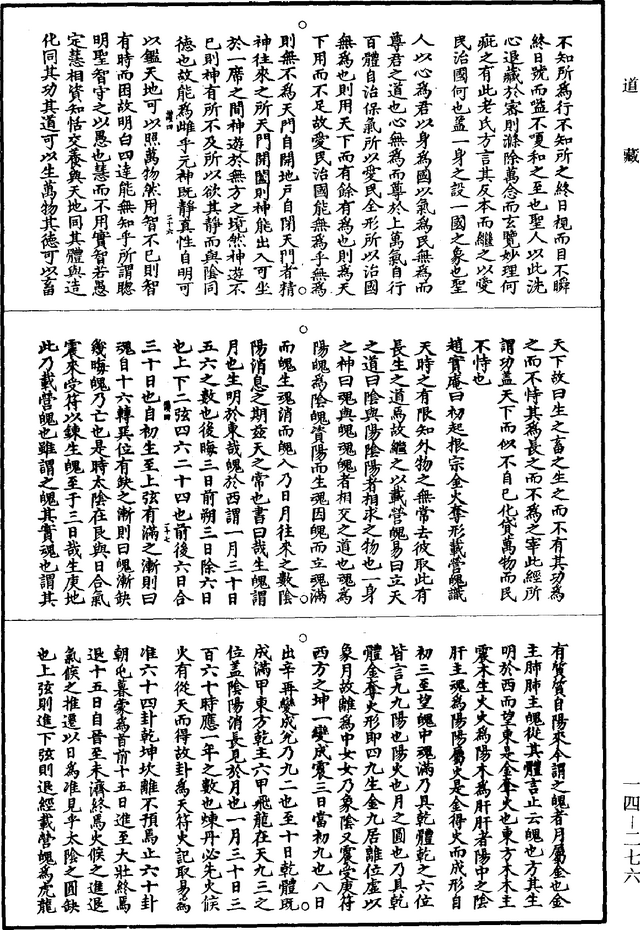 道藏
不知所為行不知所之終日視而目不瞬
終日號而嗌不嗄和之至也聖人以此洗
心退藏於密則滌除萬念而玄覽妙理何
疵之有此老氏方言其反本而繼之以愛
民治國何也蓋一身之設一國之象也聖
人以心為君以身為國以氣為民無為而
尊君之道也心無為而尊於上萬氣自行
百體自治保氣所以愛民全形所以治國
無為也則用天下而有餘有為也則為天
下用而不足故愛民治國能無為乎無為
則無不為天門自開地戶自閉天門者精
神往來之所天門開闔則神能出入可坐
於一席之間神遊於無方之境然神遊不
已則神有所不及所以欲其靜而與陰同
德也故能為雌乎元神既靜真性自明可
以鑑天地可以照萬物然用智不已則智
有時而困故明白四達能無知乎所謂聰
明聖智守之以愚也慧而不用實智若愚
定慧相資知恬交養與天地同其體與造
化同其功其道可以生萬物其德可以畜
天下故曰生之畜之生之而不有其功為
之而不恃其為長之而不為之宰此經所
謂功蓋天下而似不自己化貸萬物而民
不恃也
趙實庵曰初起根宗金火奪形載營魄識
天時之有限知外物之無常去彼取此有
長生之道焉故繼之以載營魄易曰立天
之道曰陰與陽陰陽者相求之物也一身
之神曰魂與魄魂魄者相交之道也魂為
陽魄為陰魄資陽而生魂因魄而立魂滿
而魄生魂消而魄入乃日月往來之數陰
陽消息之期茲天之常也書曰哉生魄謂
月也生明於東哉魄於西謂一月三十日
五六之數也後晦三日前朔三日除六日
也上下二弦四六二十四也前後六日合
三十日也自初生至上弦有滿之漸則曰
魂自十六轉巽位有缺之漸則曰魄漸缺
幾晦魄乃亡也是時太陰在艮與日合氣
震來受符以鍊生魄至于三日哉生庚地
此乃載營魄也雖謂之魄其實魂也謂其
有質質自陽來今謂之魄者月屬金也金
主肺肺主魄從其體言止云魄也方其生
明於西而望東是金奪火也東方木木主
震木生火火為陽木為肝肝者陽中之陰
肝主魂為陽陽屬火是金得火而成形自
初三至望魄中魂滿乃具乾體乾之六位
皆言九九陽也陽火也月之圓也乃具乾
體金奪火形即四九生金九居離位虛以
象月故離為中女女乃象陰又震受庚符
西方之坤一變成震三日當初九也八日
出辛再變成兌乃九二也至十日乾體既
成滿甲東方乾主六甲飛龍在天九三之
位蓋陰陽消長見於月也一月三十日三
百六十時應一年之數也煉丹必先火候
火有從天而得故卦為天符火記取易為
准六十四卦乾坤坎離不預焉止六十卦
朝屯暮蒙為首前十五日進至大壯終焉
退十五日自晉至未濟終焉火候之進退
氣候之推遷以日為准見乎太陰之圓缺
也上弦則進下弦則退經載營魄為虎龍
一四－二七六